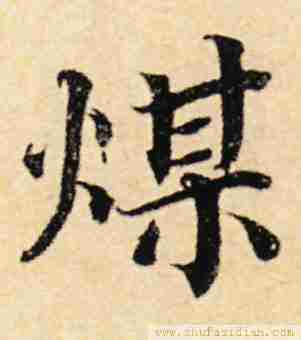 煤
www.shufazidian.com